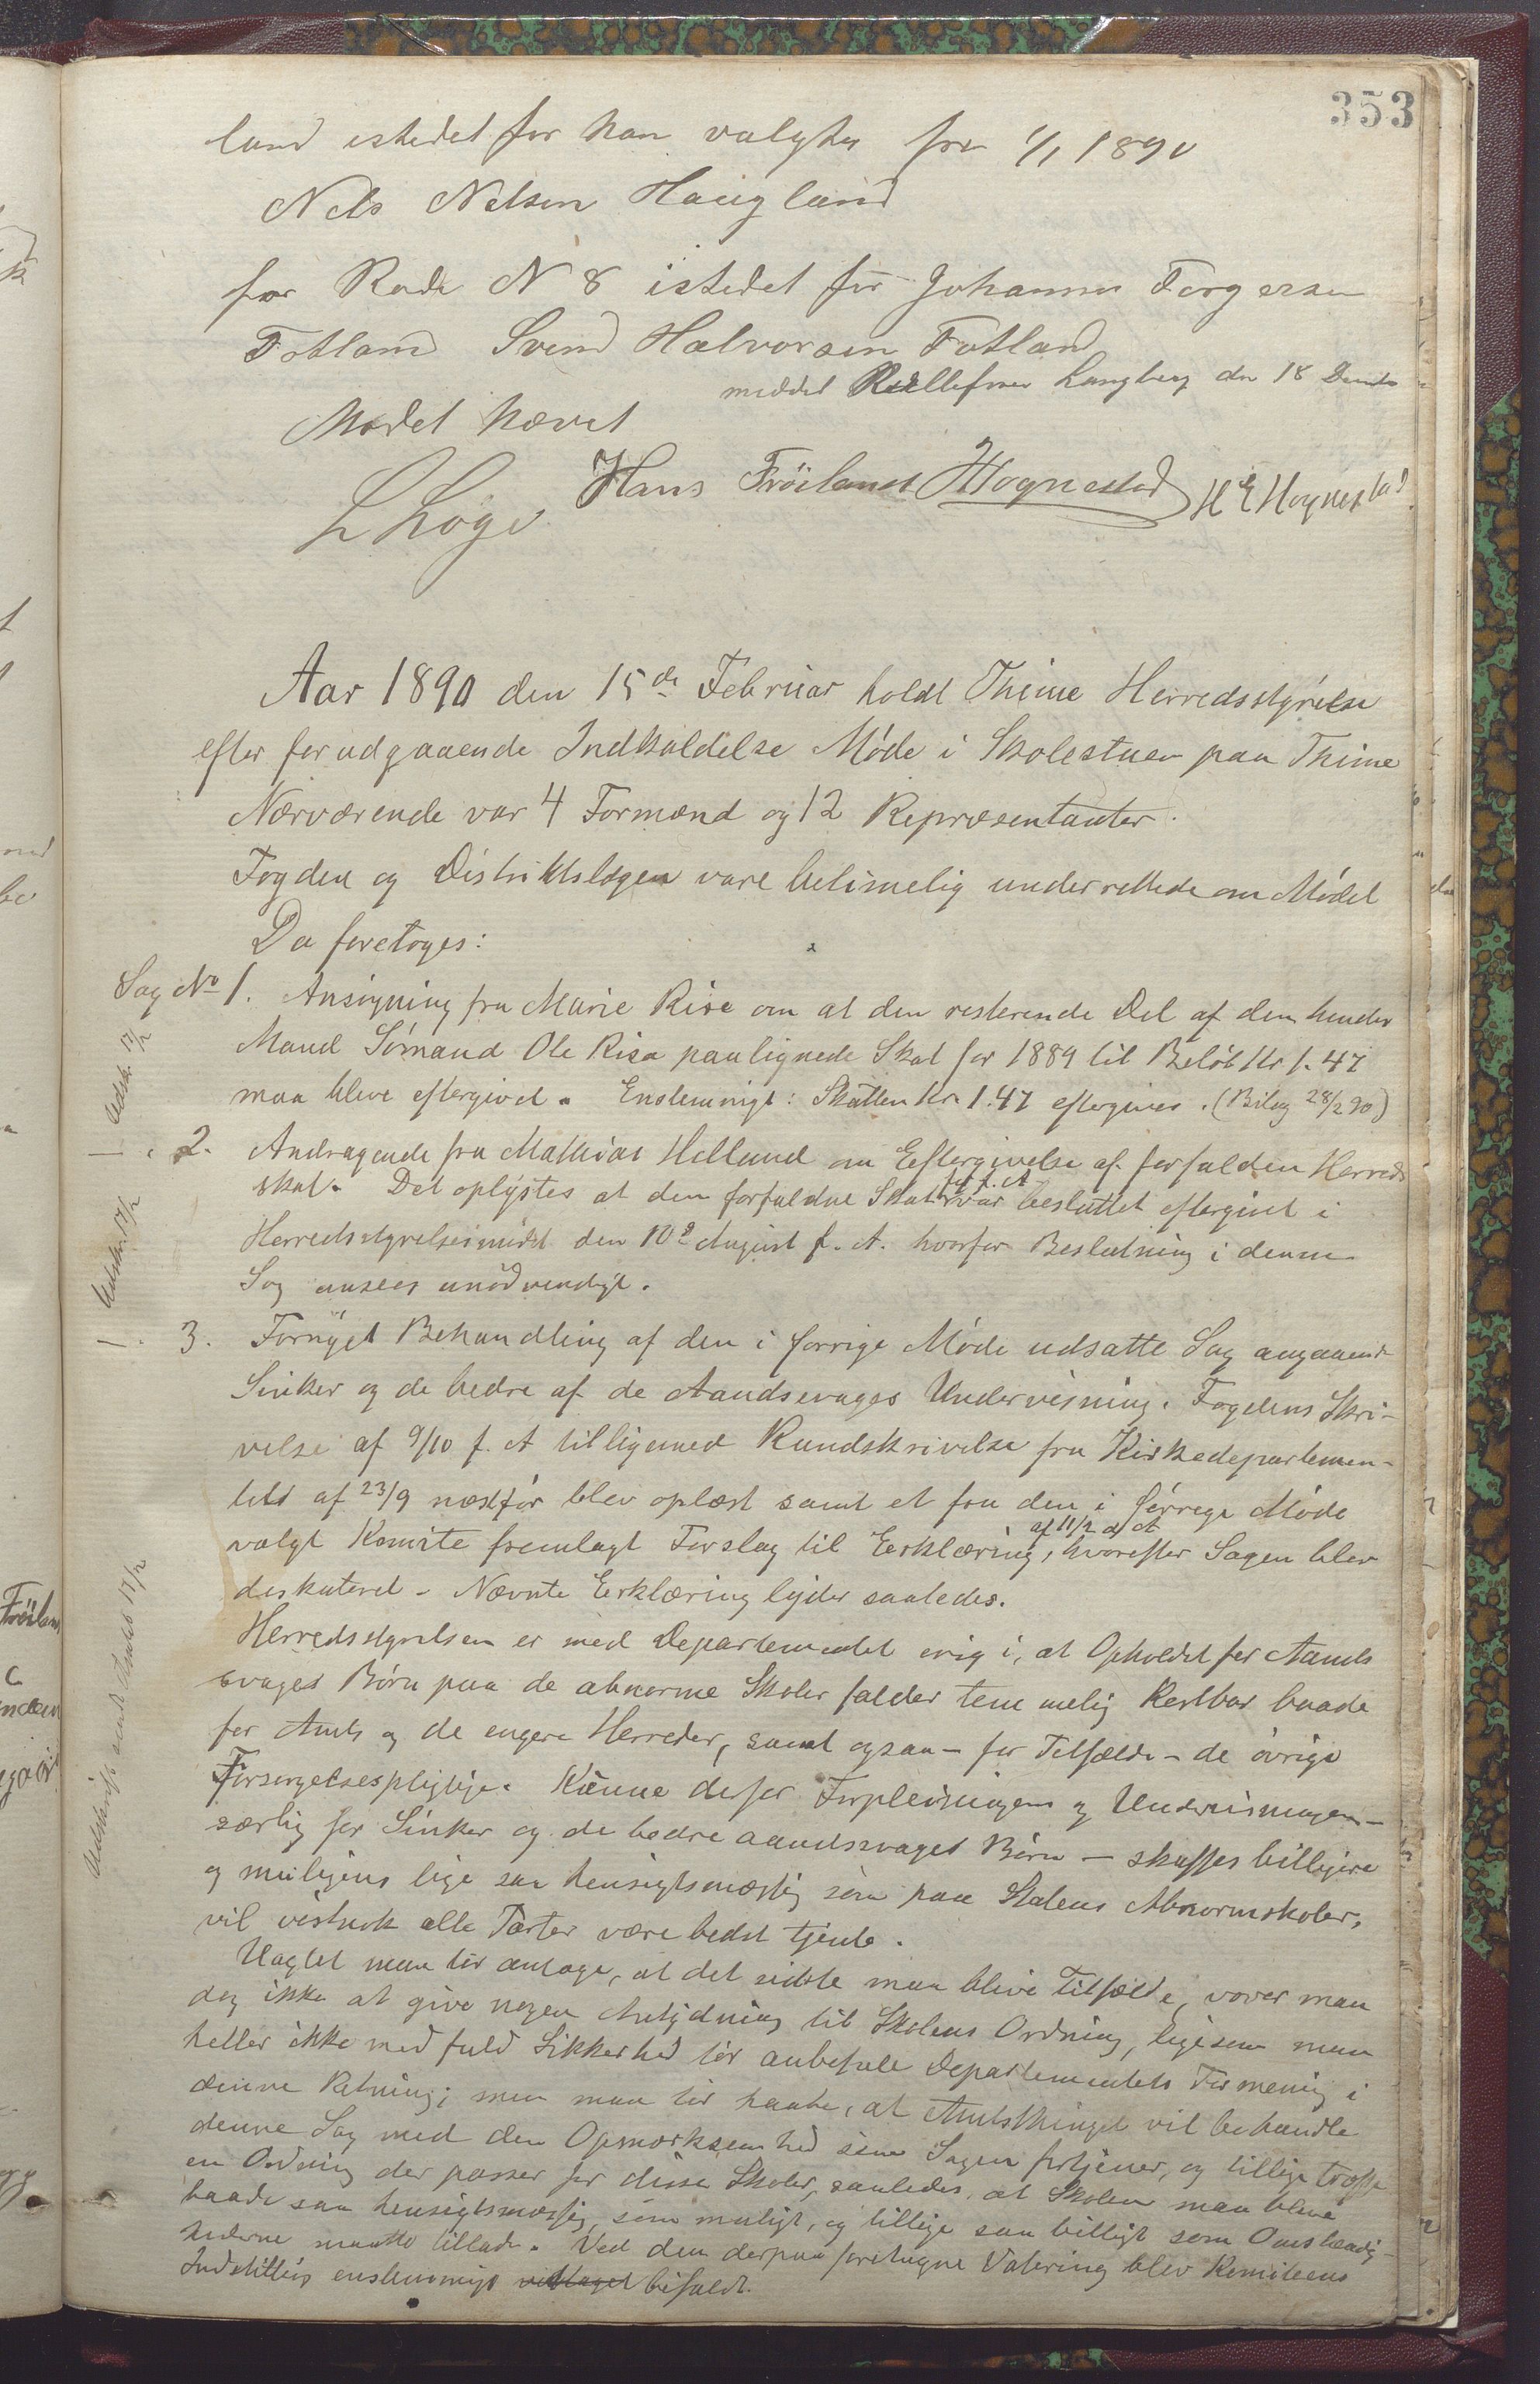 353
land istedet for han valgtes fra 1/1 1890
Nels Nelsen Haugland
for Rode N 8 istedet for Johannes Torgersen
Fotland Svend Halvorsen Fotland
meddel Langberg den 18 Decemb
Mødet hævet
L Loge Hans Fröiland H Hognestad H E Hognestad
Aar 1890 den 15de Februar holdt Thime Herredsstyrelse
efter forudgaaende Indkaldelse Møde i Skolestuen paa Thime
Nærværende var 4 Formænd og 12 Repræsentanter.
Fogden og Distriktslægen vare betimelig underrettede om Mødet
Da foretoges:
Sag No 1. Ansøgning fra Marie Rise om at den resterende Del af den hendes
Mand Sømand Ole Risa paalignede Skat for 1889 til Beløb Kr 1.47
maa blive eftergivet. Enstemmigt: Skatten Kr. 1.47 eftergives. (Bilag 28/2 90)
Udsk. 17/2
2. Andragende fra Mathias Helland om Eftergivelse af forfalden Herreds
skat. Det oplystes at den forfaldne Skat for f. A. var besluttet eftergivet i
Herredsstyrelsesmødet den 10de August f. A. hvorfor Beslutning i denne
Sag ansees unødvendigt.
Udskr. 17/2
3. Fornyet Behandling af den i forrige Møde udsatte Sag angaaende
Sinker og de bedre af de Aandsvages Undervisning. Fogdens Skri-
velse af 9/10 f. A tilligemed Rundskrivelse fra Kirkedepartemen-
tet af 23/9 næstfør blev oplæst samt et fra den i forrige Møde
valgt Komite fremlagt Forslag til Erklæring af 11/2 d A, hvorefter Sagen blev
diskuteret. Nævnte Erklæring lyder saaledes.
Udskrift sendt Amtet 17/2
Herredsstyrelsen er med Departementet enig i, at Opholdet for Aands
svages Børn paa de abnorme Skoler falder temmelig kostbar baade
for Amts og de engere Herreder, samt ogsaa – for Tilfælde – de øvrige
Forsørgelsespligtige. Kunne derfor Forpleiningen og Undervisningen –
særlig for Sinker og de bedre aandssvages Børn – skaffes billigere
og muligens lige saa hensigtsmæssig som paa Statens Abnormskoler,
vil vistnok alle Parter være bedst tjente.
Uagtet man tør antage, at det sidste maa blive Tilfælde, vover man
dog ikke at give nogen Antydning til Skolens Ordning, ligesom man
heller ikke med fuld Sikkerhed tør anbefale Departementets Formening i
denne Retning; men man tør haabe, at Amtsthinget vil behandle
denne Sag med den Opmærksomhed som Sagen fortjener, og tillige træffe
en Ordning der passer for disse Skoler, saaledes, at Skolen maa blive
baade saa hensigtsmæssig, som muligt, og tillige saa billigt som Omstændig-
hederne maatte tillade. Ved den derpaa foretagne Votering blev Komiteens
Indstilling enstemmigt vedtaget bifaldt.